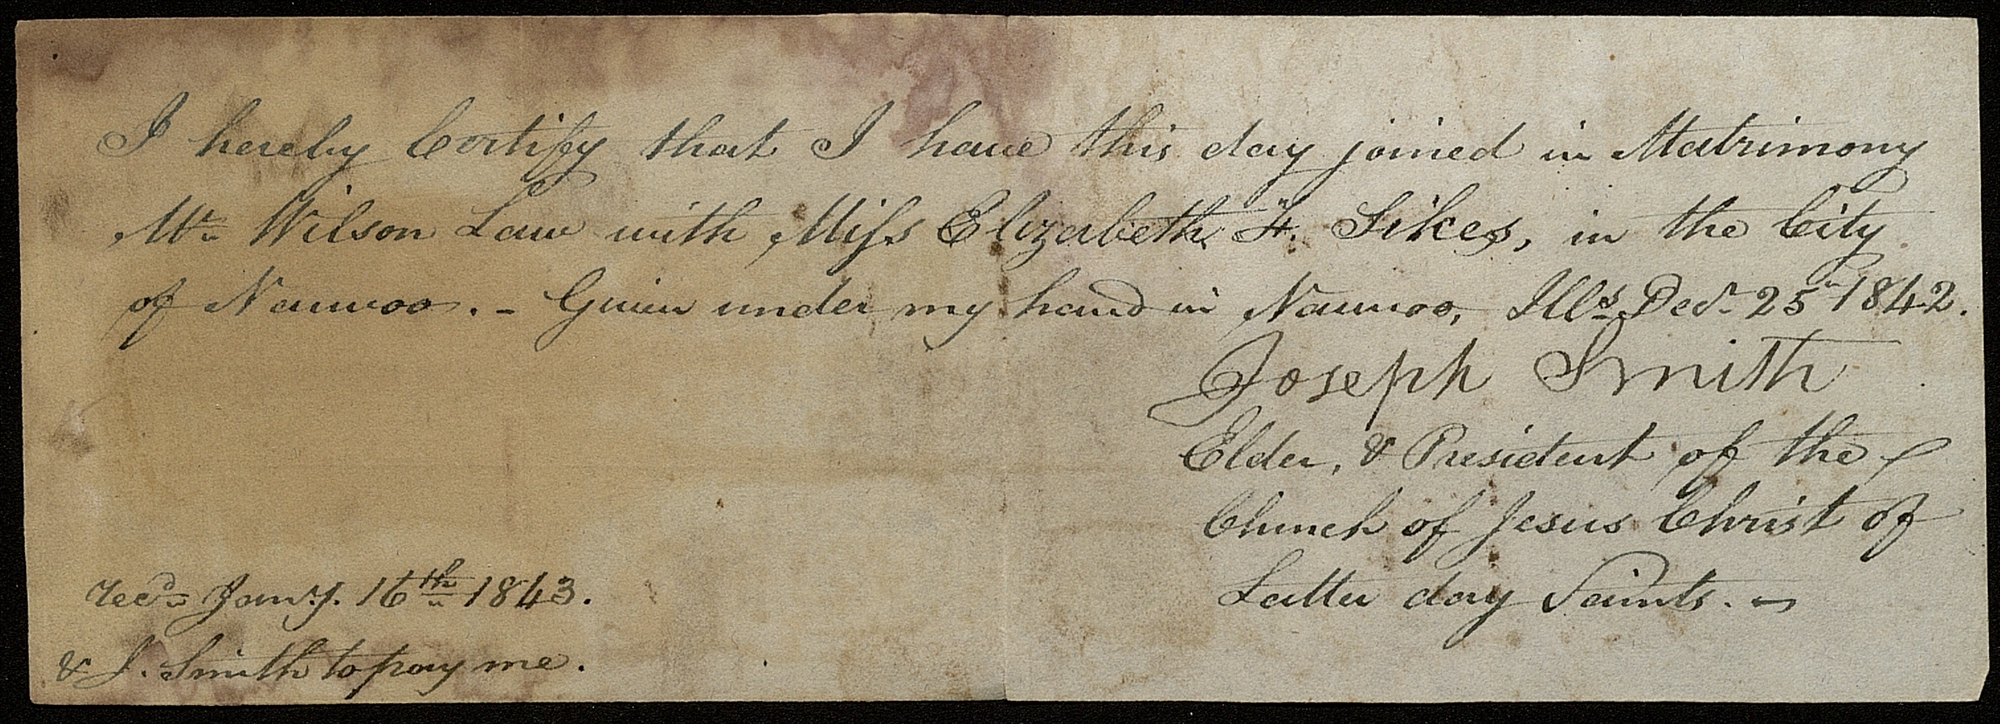 I hereby Certify that I have this day joined in Matrimony
Mr. Wilson Law with Miss Elizabeth F. Sikes, in the City
of Nauvoo. - Given under my hand in Nauvoo, Ills. Dec. 25th 1842.
Joseph Smith
Elder, & President of the
Church of Jesus Christ of
Latter day Saints. -
rec'd Jany. 16th 1843.
& J. Smith to pay me.